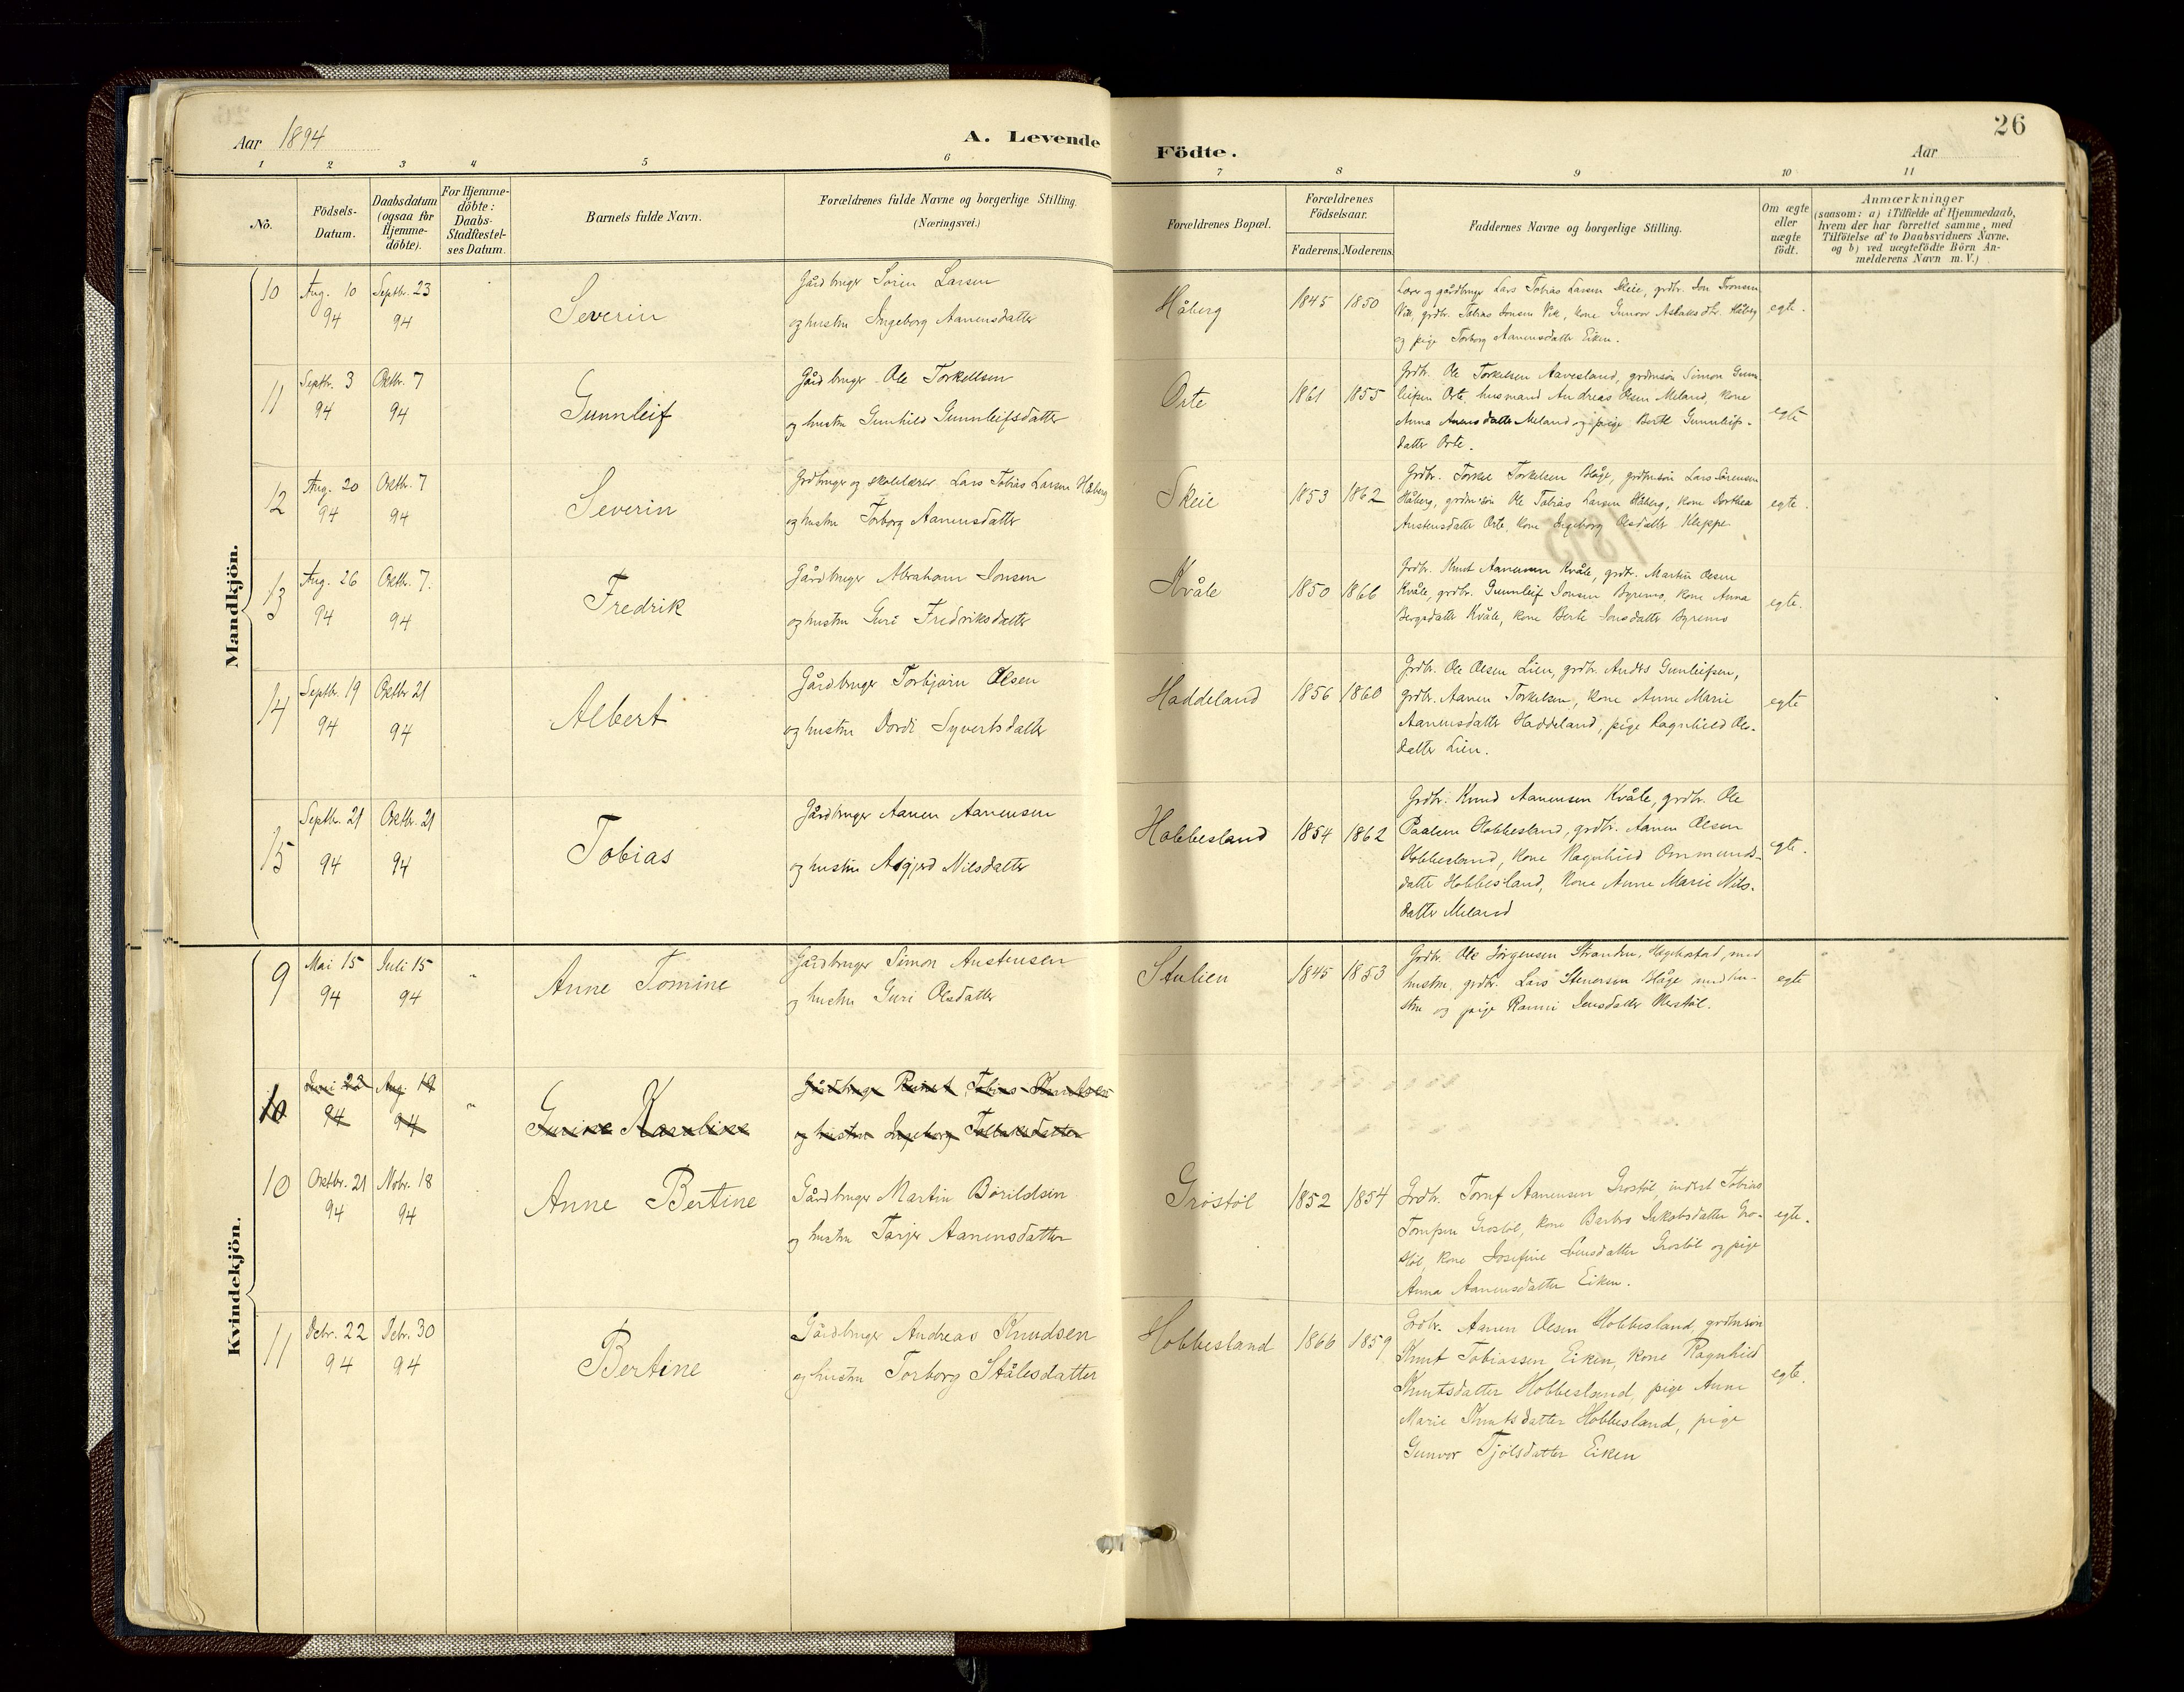 26
Aar 1894
A. Levende
Födte.
Aar
1 2 3 4 5 6 7 8 9 10 11
No.
Födsels-Datum.
Daabsdatum (ogsaa for Hjemme-döbte).
For Hjemme-döbte: Daabs-Stadfæstel-ses Datum.
Barnets fulde Navn.
Forældrenes fulde Navne og borgerlige Stilling.
(Næringsvei.)
Forældrenes Bopæl.
Forældrenes Födselsaar.
Faderens. Moderens.
Faddernes Navne og borgerlige Stilling.
Om ægte eller uægte födt.
Anmærkninger
(saasom: a) i Tilfælde af Hjemmedaab,
hvem der har forrettet samme, med
Tilföielse af to Daabsvidners Navne,
og b) ved uægtefödte Börn An-
melderens Navn m. V.)
Mandkjön.
10 Aug. 10 94 Septbr. 23 94 Severin
Gårdbruger Sörin Larsen
og hustru Ingeborg Aanensdatter
Håberg 1845 1850
Lærer og gårdbruger Lars Tobias Larsen Skeie, grdbr. Jon Tronsen
Vik, grdbr. Tobias Jonsen Vik, kone Gunvor Aslaksdtr. Håberg
og pige Torborg Aanensdatter Eiken.
egte.
11 Septbr. 3 94 Oktbr. 7 94 Gunnleif
Gårdbruger Ole Torkellsen
og hustru Gunhild Gunnleifsdatter
Orte 1861 1855
Grdbr. Ole Torkelsen Aavesland, grdmsön Simon Gunn-
leifsen Orte, husmand Andreas Olsen Meland, kone
Anna Aanensdatter Meland og pige Berte Gunnleifs-
datter Orte.
egte
12 Aug. 20 94 Oktbr. 7 94 Severin
Grdbruger og skolelærer Lars Tobias Larsen Håberg
og hustru Torborg Aanensdatter
Skeie 1853 1862
Grdbr. Torkel Torkelsen Håge, grdmsön Lars Sörensen
Håberg, grdmsön Ole Tobias Larsen Håberg, kone Dorthea
Austensdatter Orte, kone Ingeborg Olsdatter Kleppe.
egte.
13 Aug. 26 94 Oktbr. 7. 94 Fredrik
Gårdbruger Abraham Jonsen
og hustru Guri Fredriksdatter
Kvåle 1850 1866
Grdbr. Knut Aanensen Kvåle, grdbr. Martin Olsen
Kvåle, grdbr. Gunnleif Jonsen Byremo, kone Anna
Bergsdatter Kvåle, kone Berte Jonsdatter Byremo
egte.
14 Septbr. 19 94 Oktbr. 21 94 Albert
Gårdbruger Torbjörn Olsen
og hustru Dordi Syvertsdatter
Haddeland 1856 1860
Grdbr. Ole Olsen Lien, grdbr. Anders Gunleifsen,
grdbr. Aanen Torkelsen, kone Anne Marie
Aanensdatter Haddeland, pige Ragnhild Ols-
datter Lien.
egte
15 Septbr. 21 94 Oktbr. 21 94 Tobias
Gårdbruger Aanen Aanensen
og hustru Asgjerd Nilsdatter
Hobbesland 1854 1862
Grdbr. Knud Aanensen Kvåle, grdbr. Ole
Paalsen Hobbesland, grdbr. Aanen Olsen
Hobbesland, kone Ragnhild Ommunds-
datter Hobbesland, kone Anne Marie Nils-
datter Meland
egte.
Kvindekjön.
9 Mai 15 94 Juli 15 94 " Anne Tomine
Gårdbruger Simon Austensen
og hustru Guri Olsdatter
Stulien 1845 1853
Grdbr. Ole Jörgensen Stranden, Hægebostad, med
hustru, grdbr. Lars Stenersen Håge med hu-
stru og pige Ranni Jensdatter
egte
10 Juni 22 94 Aug. 19 94 " Gurine Karoline
Gårdbruger Tobias Knutsen
og hustru Ingeborg Tallaksdatter
10 Oktbr. 21 94 Nobr. 18 94 Anne Bertine
Gårdbruger Martin Börildsen
og hustru Tarjer Aanensdatter
Gröstöl 1852 1854
Grdbr. Tomf Aanensen Gröstöl, inderst Tobias
Tomfsen Gröstöl, kone Barbro Jakobsdatter Grö-
stöl, kone Josefine Jensdatter Gröstöl og pige
Anna Aanensdatter Eiken.
egte.
11 Debr. 22 94 Debr. 30 94 Bertine
Gårdbruger Andreas Knudsen
og hustru Torborg Stålesdatter
Hobbesland 1866 1859
Grdbr. Aanen Olsen Hobbesland, grdmsön
Knut Tobiassen Eiken, kone Ragnhild
Knutsdatter Hobbesland, pige Anne
Marie Knutsdatter Hobbesland, pige
Gunvor Tjölsdatter Eiken
egte.